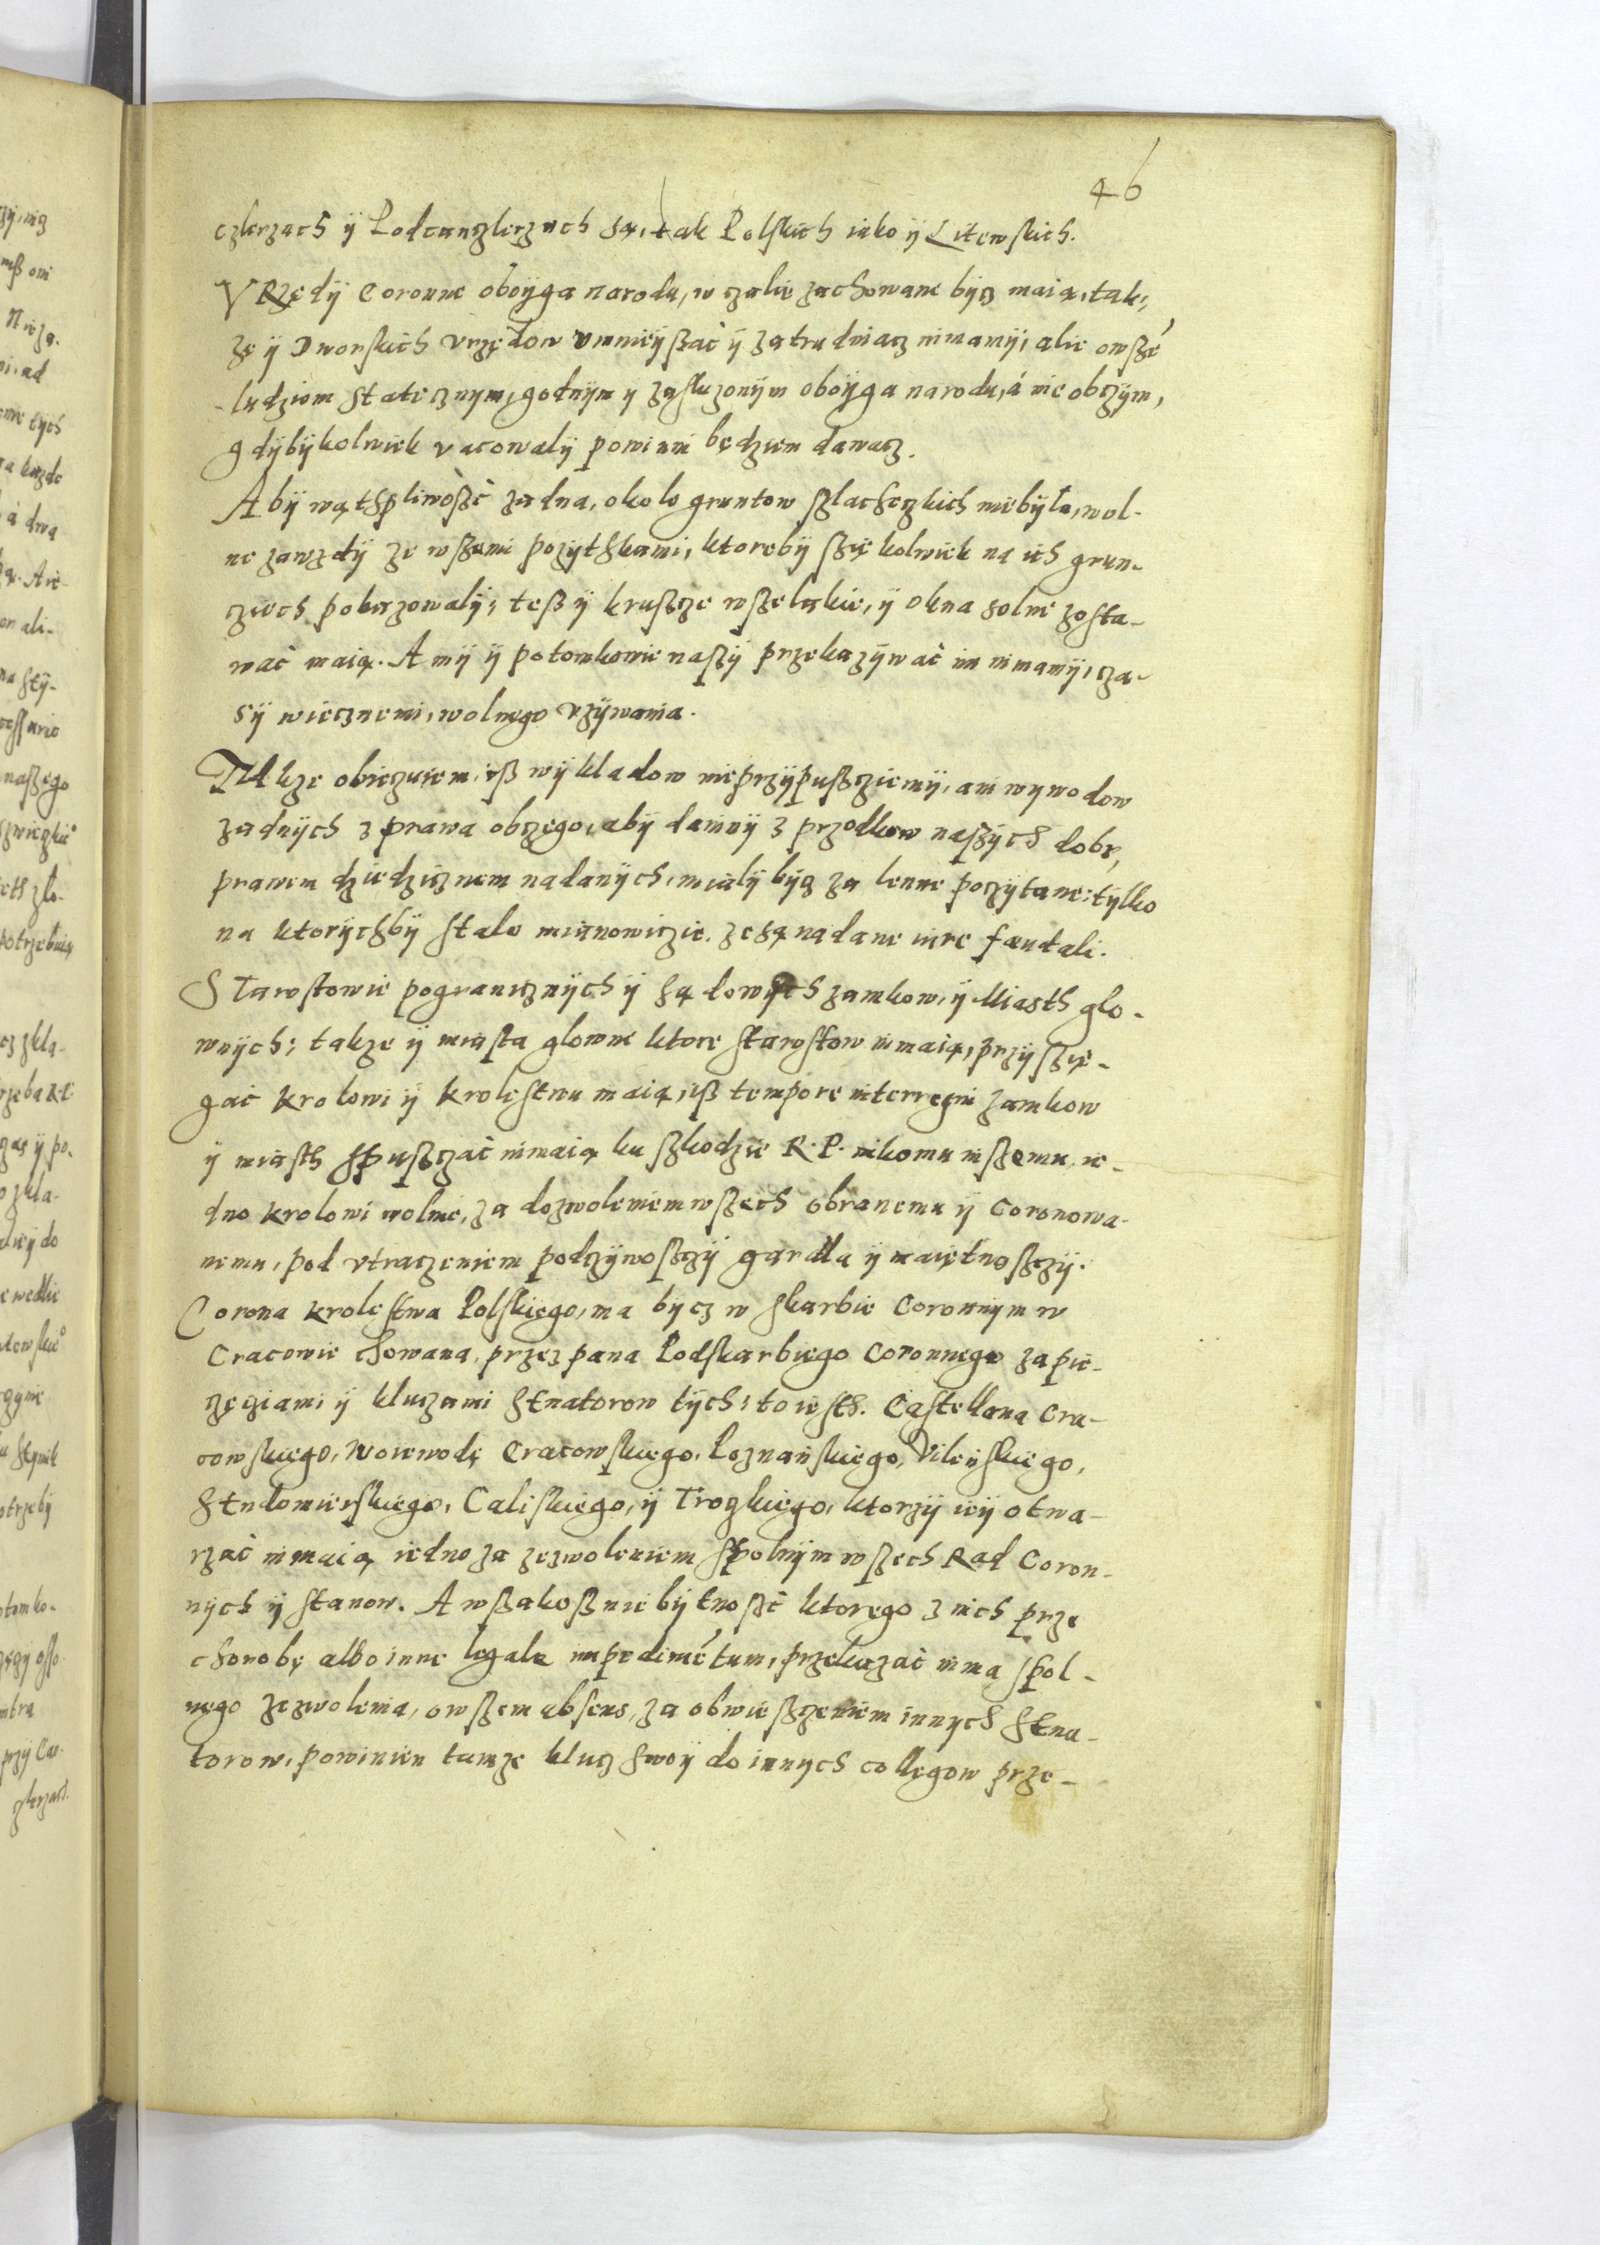 46
czlerzach ÿ Podcanczlerzach są, tak Polskich iako ÿ Litewskich.
VRzędÿ Coronne oboÿga narodu, w czalie zachowane bÿcz maią, tak,
ze ÿ Dworskich vrzędow vmnieÿszać ÿ zatrudniacz nimamÿ, alie owszé
ludziom statecznym, godnÿm ÿ zasluzonÿm oboÿga narodu, á nie obczÿm,
gdÿbÿkolwiek vacowalÿ powinni będziem dawacz.
Abÿ wąthpliwoszć zadna, okolo gruntow szlacheczkich niebÿla, wol-
ne zawzdÿ ze wszemi pozÿthkami, ktorebÿ szię kolwiek na ich grun-
cziech pokazowalÿ, tesz ÿ kruszcze wszelakie, ÿ okna solne zosta-
wać maią. A mÿ ÿ potomkowie naszÿ przekazÿwać im nimamÿ, cza-
sÿ wiecznemi, wolnego vzÿwania.
TAkze obieczuiem, isz wÿkladow nieprzÿpuszcziemÿ, ani wywodow
zadnÿch z prawa obczego, abÿ daninÿ z przodkow naszÿch dobr,
prawem dziedzicznem nadanÿch, mialÿ bÿcz za lenne poczÿtane: tÿlko
na ktorÿchbÿ stalo mianowiczie. ze są nadane iure fæudali.
STarostowie pogranicznÿch ÿ sądowÿch zamkow, ÿ Miasth glo-
wnÿch; takze ÿ miasta glowne ktore starostow nimaią, przÿszię-
gać krolowi ÿ krolestwu maią, isz tempore interregni zamkow
ÿ miasth spuszczać nimaią ku szkodzie R. P. nikomu inszemu, ie-
dno krolowi wolnie, za dozwoleniem wszech obranemu ÿ Coronowa-
nemu, pod vtraczeniem podczÿwoszczÿ gardla ÿ maiętnoszczÿ.
Corona krolestwa Polskiego, ma bÿcz w skarbie Coronnÿm w
Cracowie chowana, przez pana Podskarbiego Coronnego za pie-
częciami ÿ kluczami Senatorow tÿch: to iesth. Castellana Cra-
cowskiego, Woiewodę Cracowskiego, Poznańskiego, Vileńskiego,
Sendomierskiego, Caliskiego, ÿ Troczkiego, ktorzÿ ieÿ otwa-
rzać nimaią iedno za zezwoleniem spolnÿm wszech Rad Coron-
nÿch ÿ stanow. A wszakosz niebÿtnoszć ktorego z nich prze
chorobę albo inne legale impedimétum, przekazać nima spol-
nego zezwolenia, owszem absens, za obwieszczeniem innych Sena-
torow, powinien tamze klucz swoÿ do innych collegow prze-